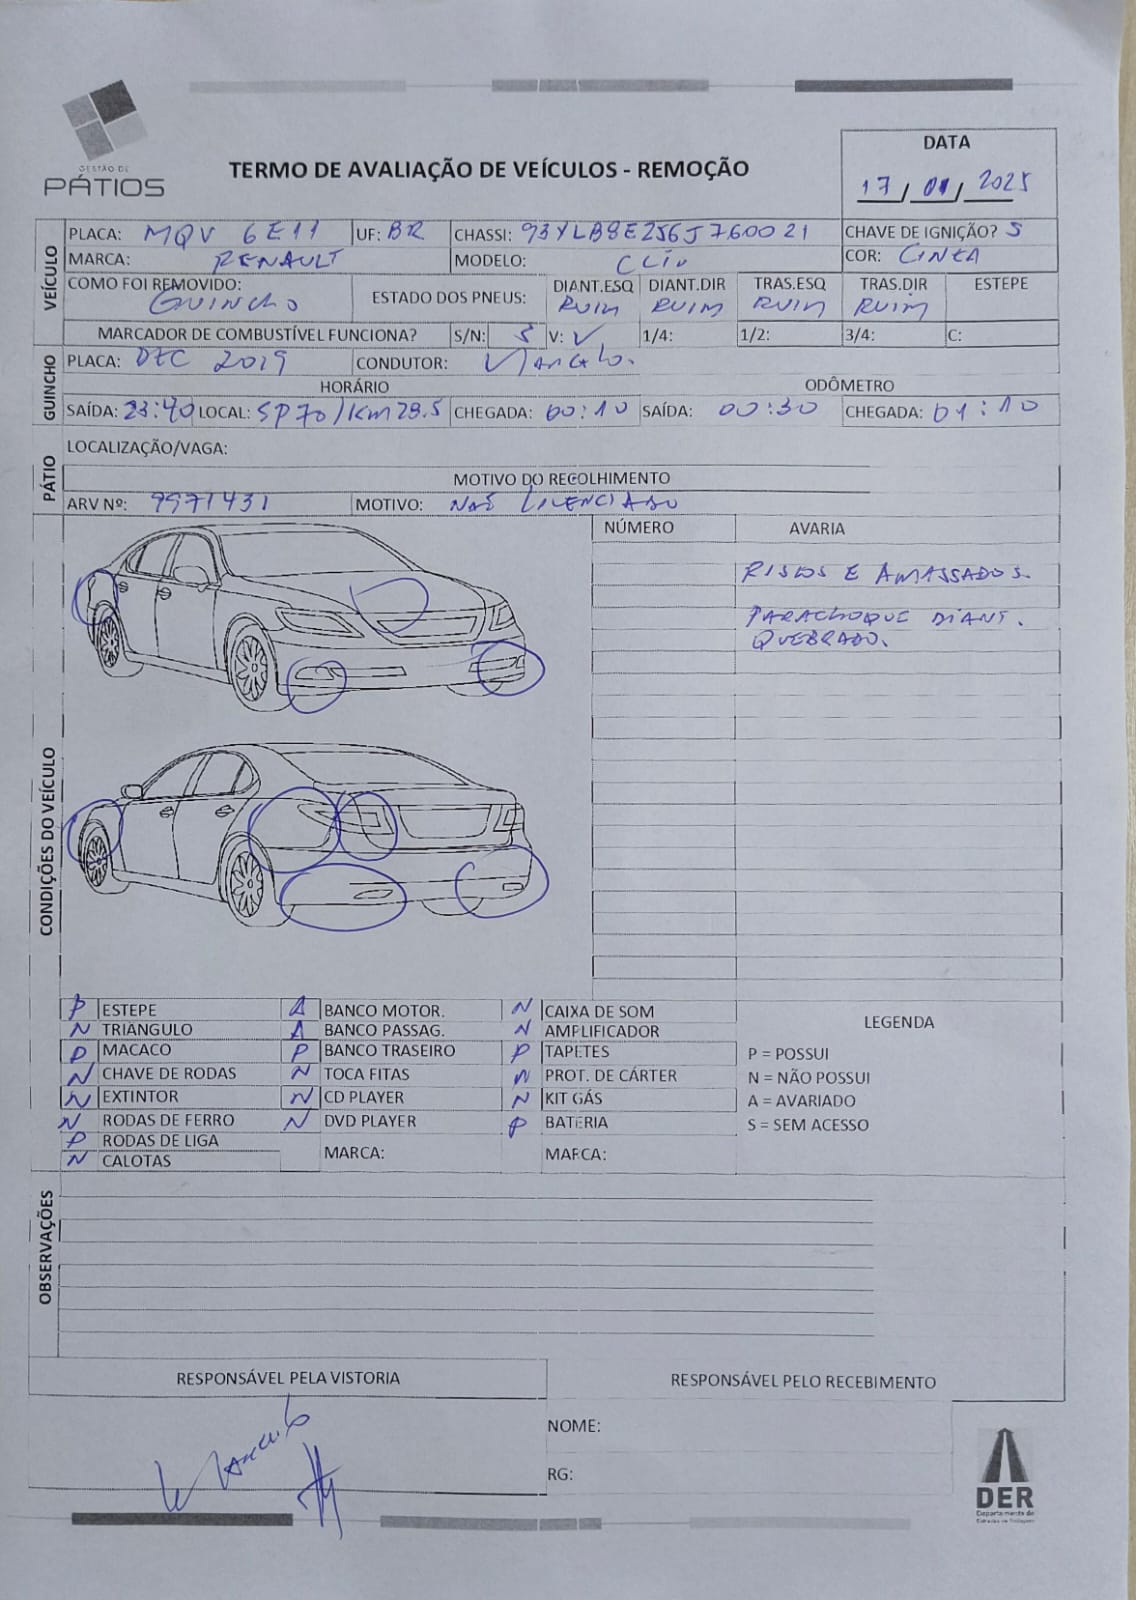 GESTÃO DE
PÁTIOS
TERMO DE AVALIAÇÃO DE VEÍCULOS - REMOÇÃO
DATA
17 / 01 / 2025
VEÍCULO
PLACA: MQV 6E11 UF: BR CHASSI: 93YLB8E256J760021 CHAVE DE IGNIÇÃO? S
MARCA: RENAULT MODELO: CLIO COR: CINZA
COMO FOI REMOVIDO: GUINCHO ESTADO DOS PNEUS: DIANT.ESQ RUIM DIANT.DIR RUIM TRAS.ESQ RUIM TRAS.DIR RUIM ESTEPE
MARCADOR DE COMBUSTÍVEL FUNCIONA? S/N: S V: V 1/4: 1/2: 3/4: C:
GUINCHO
PLACA: DEC 2019 CONDUTOR:
HORÁRIO ODÔMETRO
SAÍDA: 23:40 LOCAL: SP70/KM 29.5 CHEGADA: 00:10 SAÍDA: 00:30 CHEGADA: 01:10
PÁTIO
LOCALIZAÇÃO/VAGA:
MOTIVO DO RECOLHIMENTO
ARV Nº: 9971431 MOTIVO: NÃO LICENCIADO
CONDIÇÕES DO VEÍCULO
NÚMERO AVARIA
RISCOS E AMASSADOS.
PARACHOQUE DIANT.
QUEBRADO.
P ESTEPE A BANCO MOTOR. N CAIXA DE SOM
N TRIÂNGULO A BANCO PASSAG. N AMPLIFICADOR
P MACACO P BANCO TRASEIRO P TAPETES
N CHAVE DE RODAS N TOCA FITAS N PROT. DE CÁRTER
N EXTINTOR N CD PLAYER N KIT GÁS
N RODAS DE FERRO N DVD PLAYER P BATERIA
P RODAS DE LIGA MARCA: MARCA:
N CALOTAS
LEGENDA
P = POSSUI
N = NÃO POSSUI
A = AVARIADO
S = SEM ACESSO
OBSERVAÇÕES
RESPONSÁVEL PELA VISTORIA
RESPONSÁVEL PELO RECEBIMENTO
NOME:
RG:
DER
Departamento de
Estradas de Rodagem